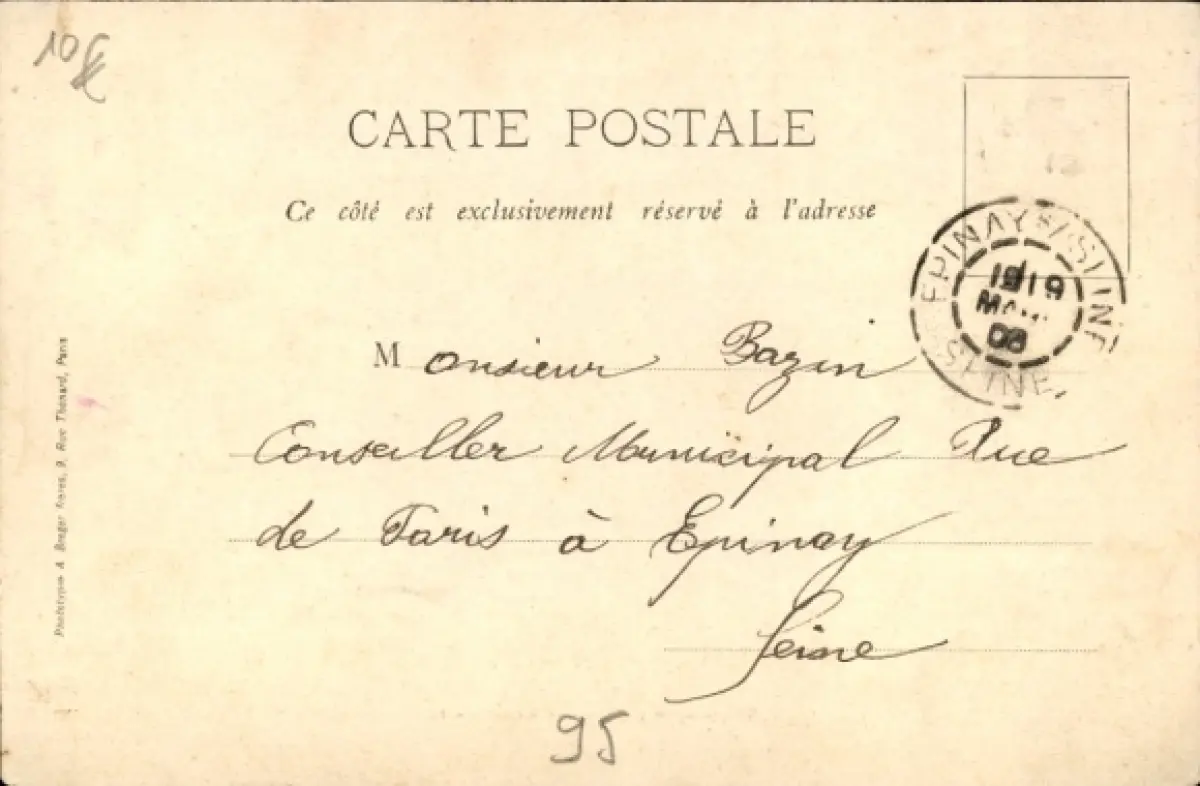 10€
CARTE POSTALE
Ce côté est exclusivement réservé à l'adresse
EPINAY S/ SEINE
19
08
SEINE
Monsieur Bazin
Conseiller Municipal Rue
de Paris à Epinay
Seine
Phototypie A. Breger Frères, 9, Rue Thénard, Paris
95